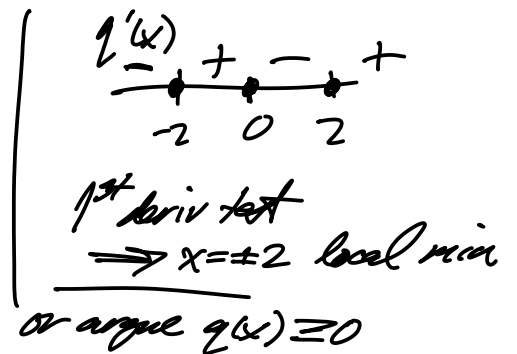 q'(x)
− + − +
-2 0 2
1st deriv test
⟹ x=±2 local min
or argue q(x)≥0